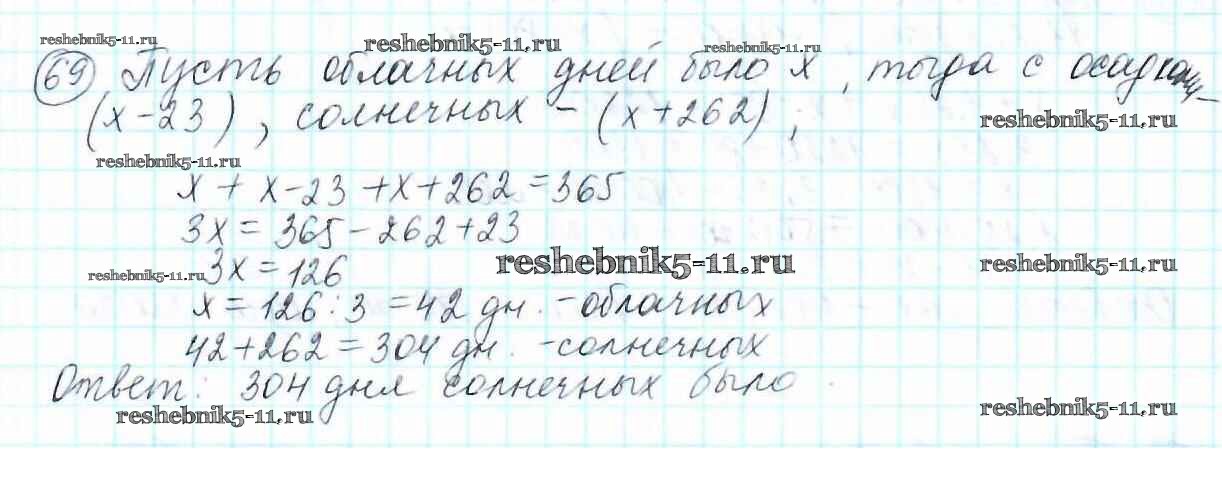 reshebnik5-11.ru
reshebnik5-11.ru
reshebnik5-11.ru
69 Пусть облачных дней было x, тогда с осадками -
(x-23), солнечных - (x+262);
reshebnik5-11.ru
reshebnik5-11.ru
x + x-23 +x+262=365
3x= 365-262+23
reshebnik5-11.ru
reshebnik5-11.ru
reshebnik5-11.ru
3x=126
x=126:3=42 дн. -облачных
42+262=304 дн. -солнечных
Ответ: 304 дня солнечных было.
reshebnik5-11.ru
reshebnik5-11.ru